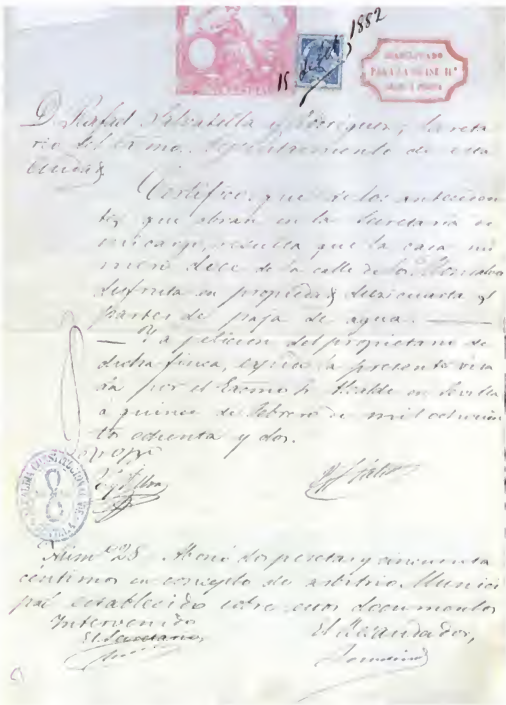 15 de feb 1882
HABILITADO
PARA LA CLASE 11ª
D. Rafael y Rodriguez, Secreta
rio del Exmo. Ayuntamiento de esta
Ciudad
Certifico: que de los anteceden
tes que obran en la Secretaria de
mi cargo, resulta que la casa nú
mero doce de la calle de los
disfruta en propiedad
partes de paja de agua.
Y a peticion del propietario de
dicha finca, expido la presente visa
da por el Excmo. Sr. Alcalde en Sevilla
á quince de Febrero de mil ochocien
tos ochenta y dos.
ALCALDIA CONSTITUCIONAL DE
Núm. 25 Abonó dos pesetas y cincuenta
céntimos en concepto de arbitrio Munici
pal establecido sobre esos documentos
Intervenido
El Secretario,
El Recaudador,